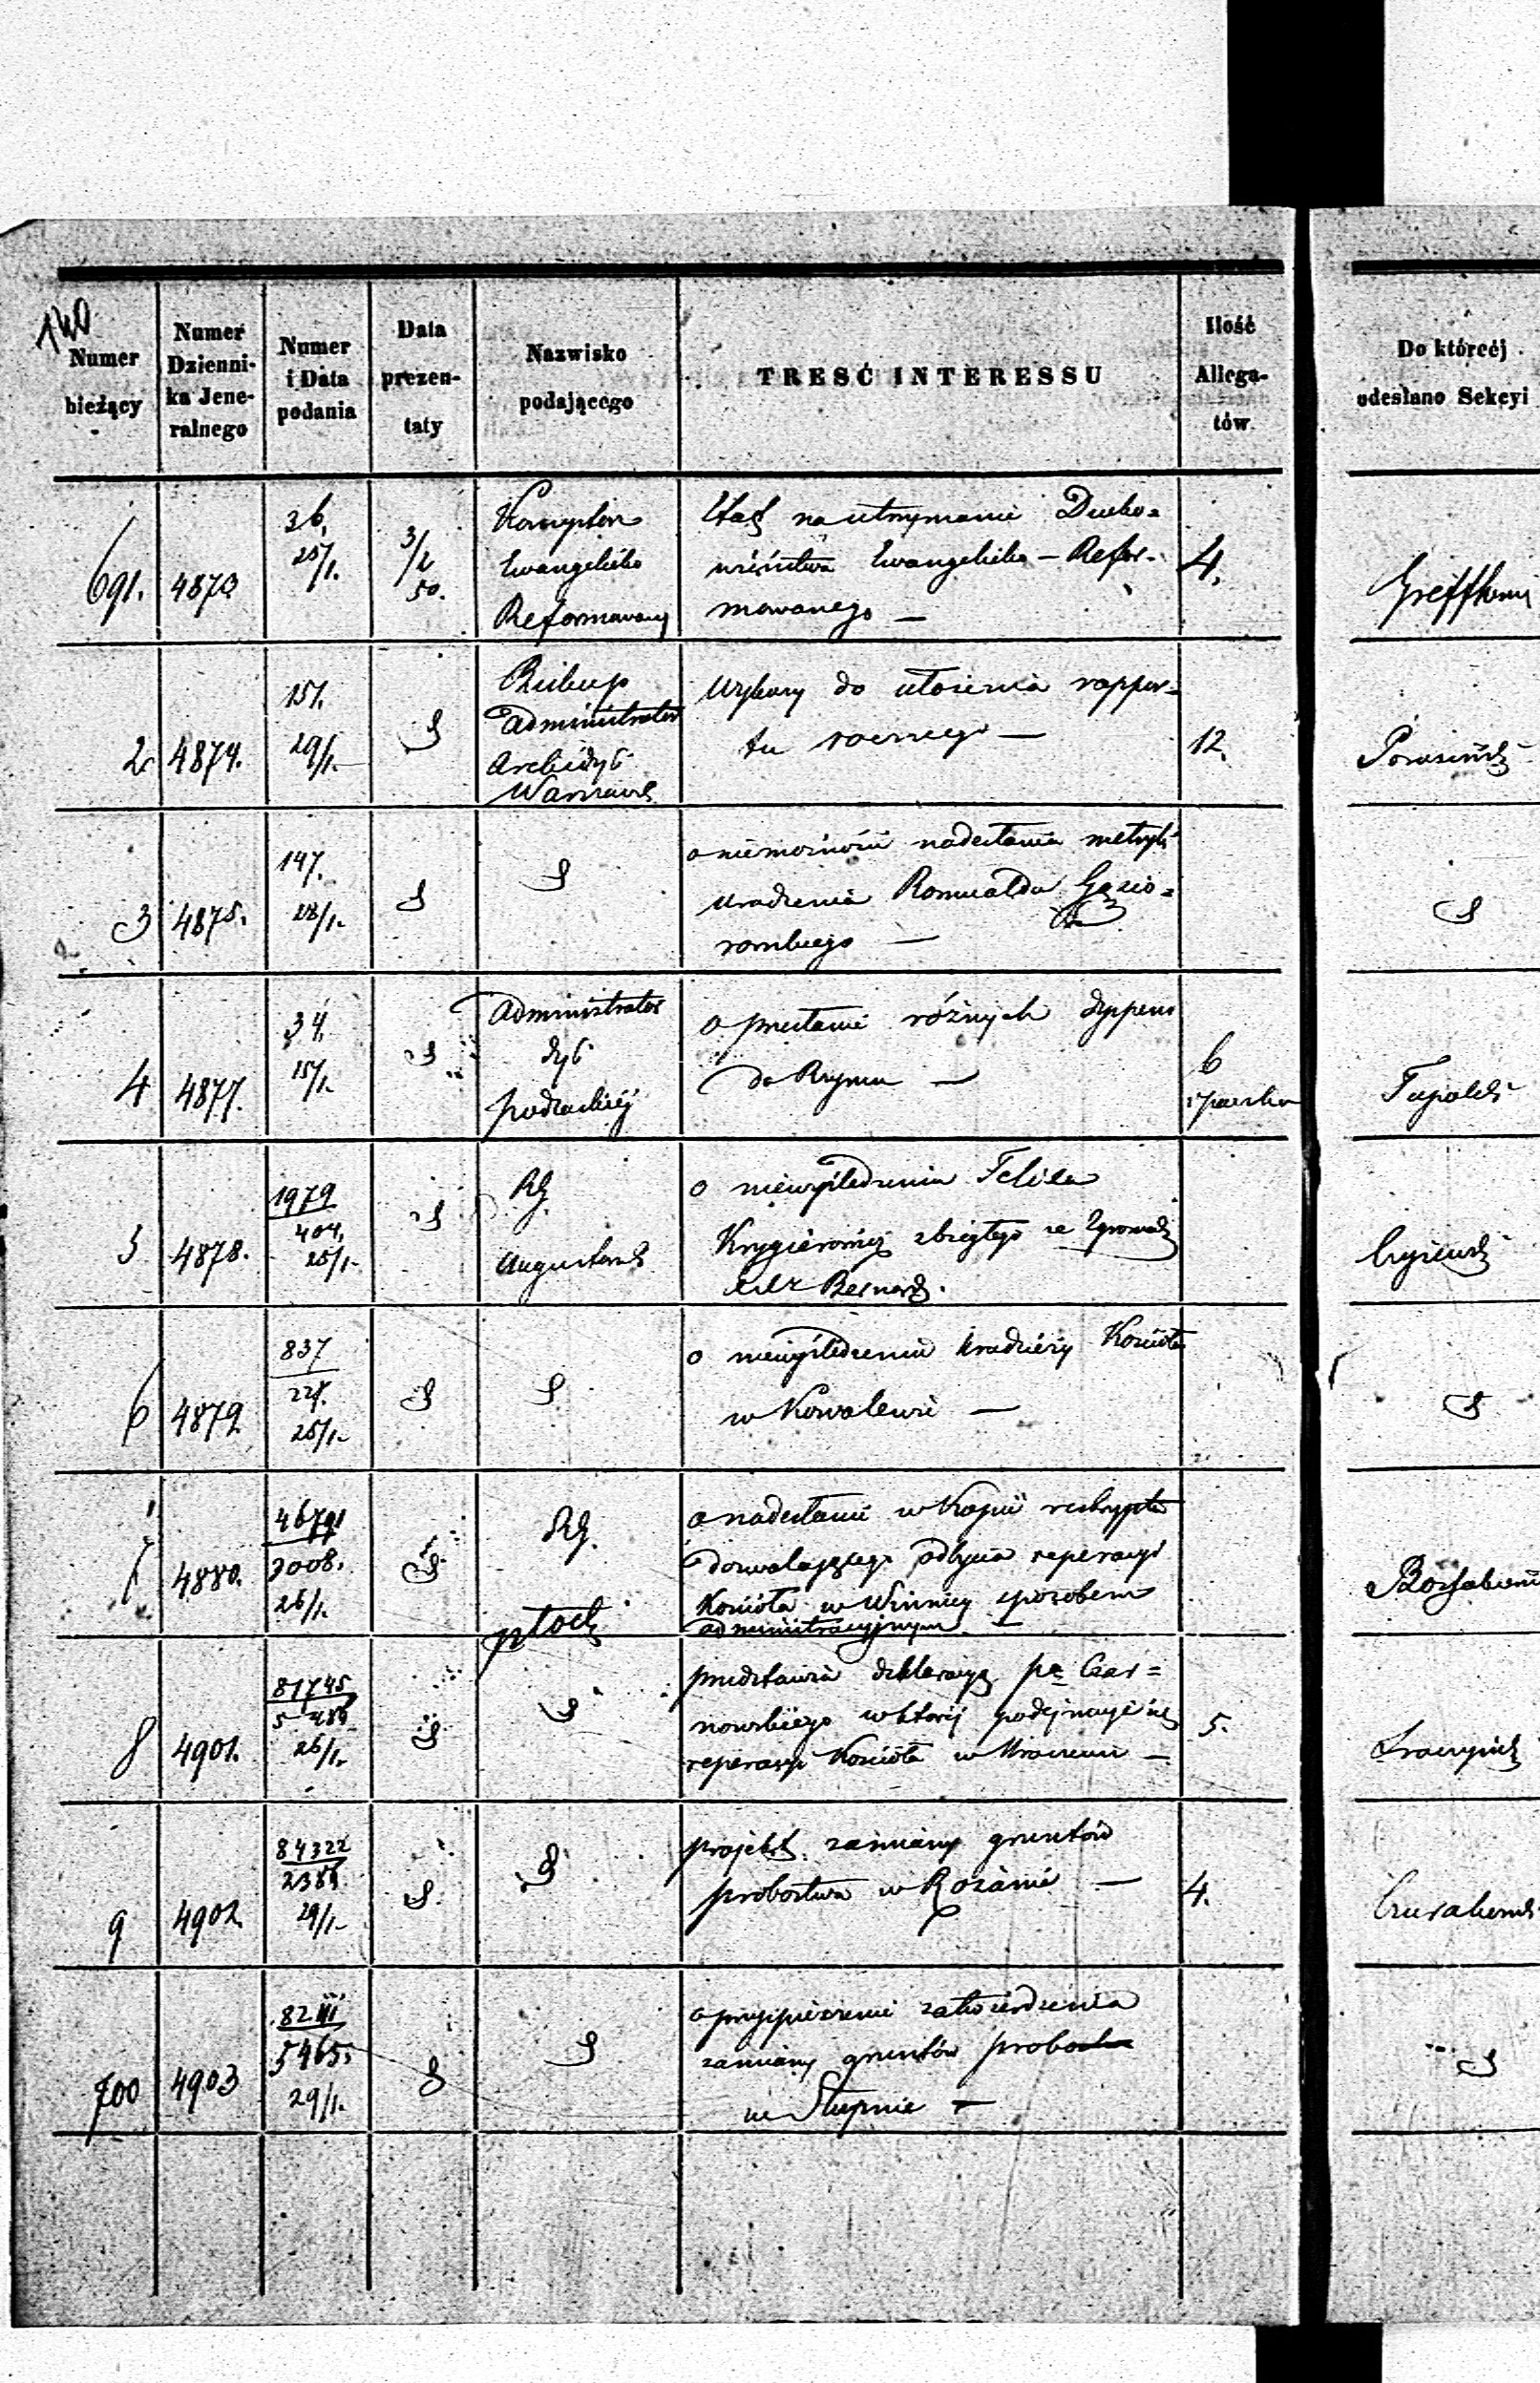 140
Numer bieżący
Numer Dzienni- ka Jene- ralnego
Numer i Data podania
Data prezen- taty
Nazwisko podającego
TRESĆ INTERESSU
Ilość Allega- tów
Do którcéj odesłano Sekcyi
691. 4873 36. 25/1. 3/2 50.
Konsystorz
Ewangelicko
Reformowany
Etat na utrzymanie Ducho-
wieństwa Ewangelicko - Refor-
mowanego —
4.
2 4874. 151. 29/1.
Biskup
Administrator
Archidyec
Warszawsk
Wykazy do ułożenia rappor-
tu rocznego —
12.
3 4875. 147. 28/1.
o niemożności nadesłania metryki
urodzenia Romualda Gąsio-
rowskiego —
4 4877. 34. 15/1.
Administrator
dyec
podlaskiej
o przesłanie różnych dyspens
do Rzymu —
6
5 4878. 1979 404. 25/1.
RG
Augustowsk
o niewyśledzeniu Felixa
zbiegłego ze Zgromadz
Bernard.
6 4879 837 227. 25/1.
o niewyśledzeniu kradzieży Kościoła
w Kowalewie —
7 4880. 46791 3008. 26/1.
RG.
płock
o nadesłanie w kopii reskryptu
dozwalającego odbycia reperacyi
Kościoła w Winnicy sposobem
administracyjnym —
8 4901. 81745 26/1.
przedstawia deklaracyę pa Czar-
nowskiego w której podejmuje się
reperacyi Kościoła w —
5.
9 4902 84322 29/1.
projekt zamiany gruntów
probostwa w Rożanie —
4.
700 4903 82 III 5465. 29/1.
o przyspieszenie zatwierdzenia
zamiany gruntów probostwa
w Słupnie —